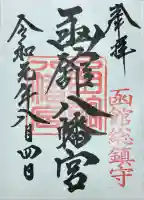 奉拝
函館総鎮守
函館八幡宮
令和元年八月四日